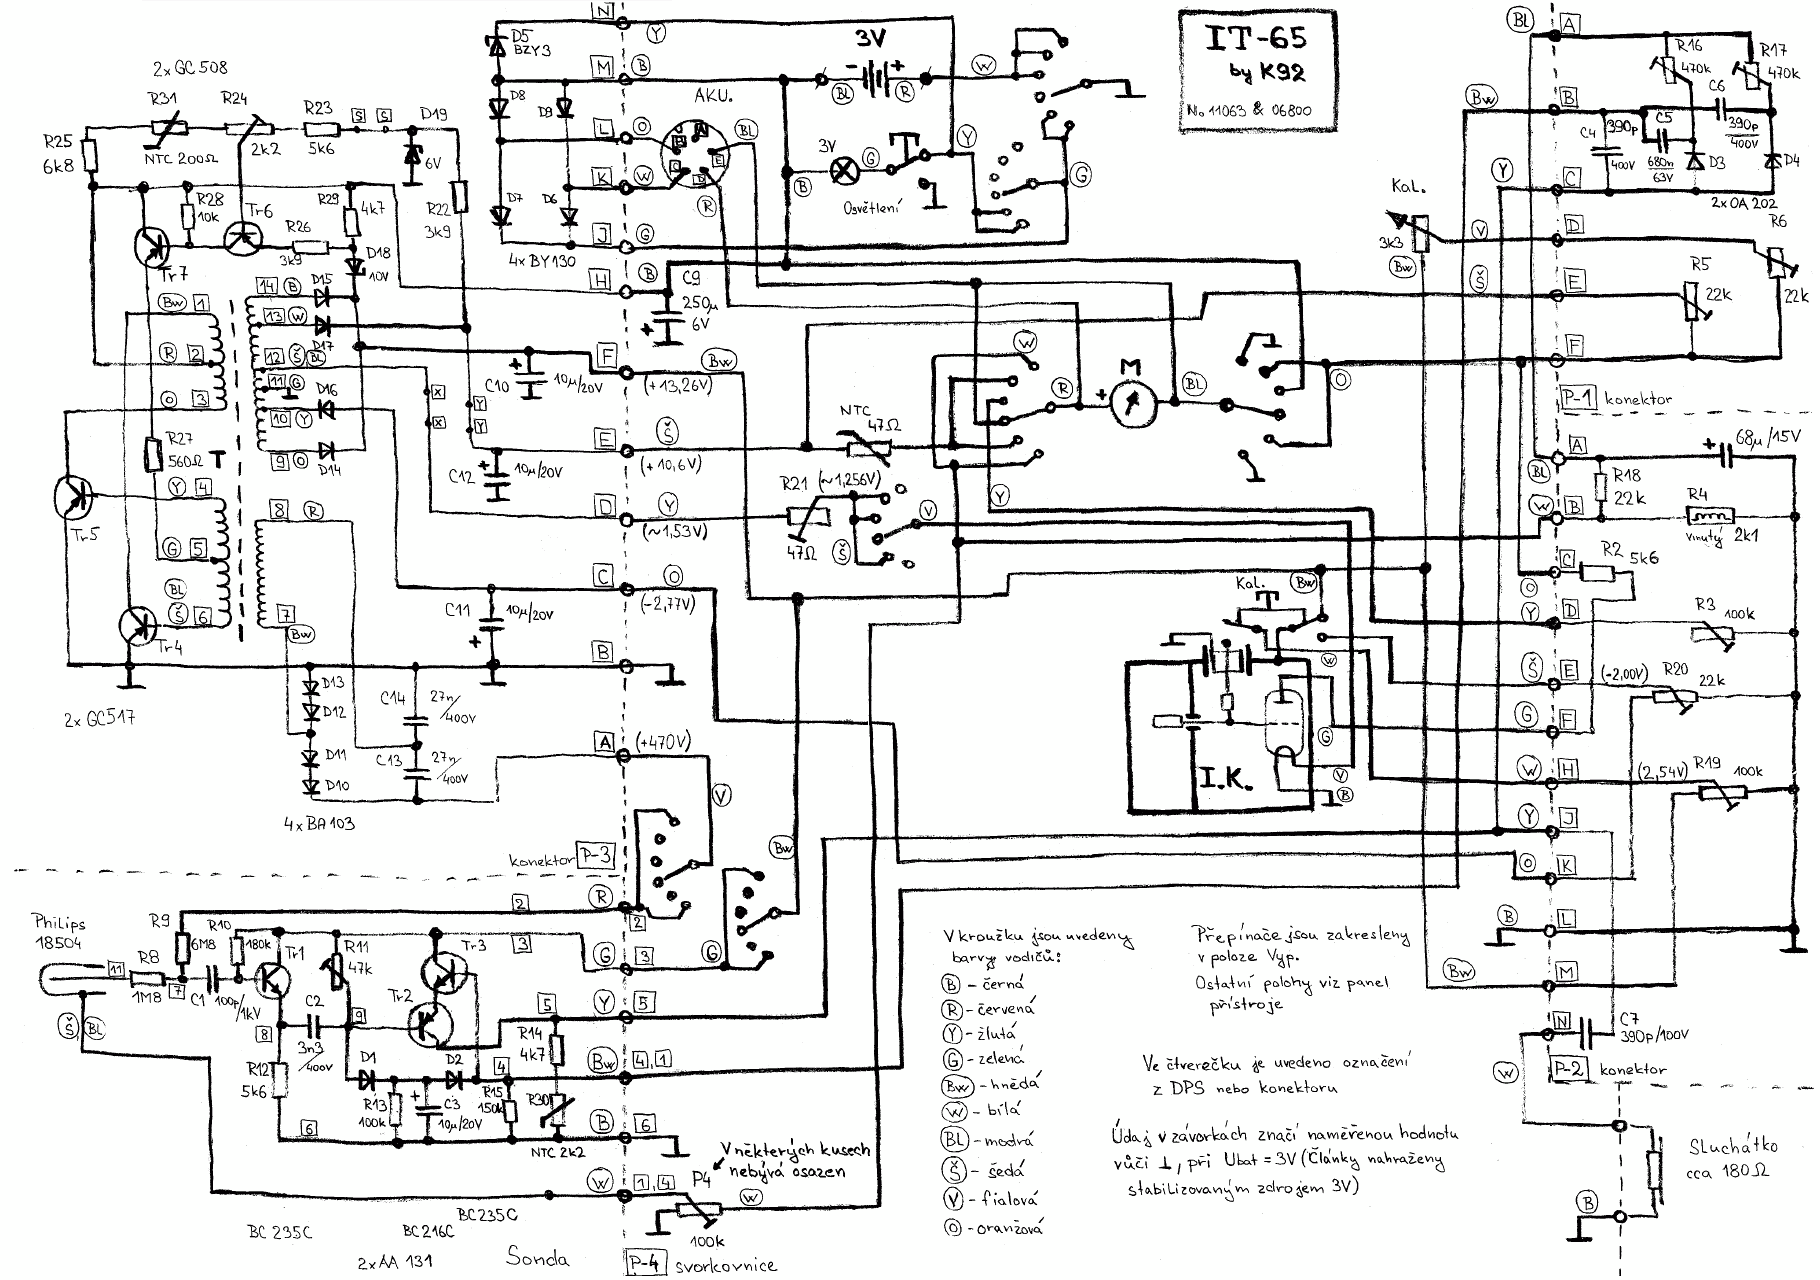 IT-65
by K92
No 11063 & 06800
2x GC 508
R31
NTC 200Ω
R24
2k2
R23
5k6
S
S
D19
6V
R25
6k8
R28
10k
Tr6
R29
4k7
R22
3k9
R26
3k9
D18
10V
Tr7
D5
BZY3
D8
D9
D7
D6
4x BY 130
N
Y
M
B
L
O
K
W
J
G
H
B
AKU.
A
B
C
D
E
BL
R
3V
-
+
BL
R
W
3V
G
B
Osvětlení
Y
G
C9
250µ
6V
+
Bw
1
R
2
O
3
R27
560Ω
T
Y
4
G
5
BL
Š
6
Tr5
Tr4
2x GC517
14
B
D15
13
W
D17
12
Š
BL
11
G
D16
10
Y
9
O
D14
8
R
7
Bw
X
X
Y
Y
+
C10
10µ/20V
F
Bw
(+13,26V)
+
C12
10µ/20V
E
Š
(+10,6V)
D
Y
(~1,53V)
C
O
(-2,77V)
C11
10µ/20V
+
B
D13
D12
D11
D10
C14
27n/400V
C13
27n/400V
A
(+470V)
4x BA 103
konektor
P-3
V
Bw
G
NTC
47Ω
R21
(~1,256V)
47Ω
Š
V
W
R
+
M
BL
O
Y
Kal.
Bw
W
G
V
B
I.K.
Kal.
3k3
V
Bw
Š
BL
A
R16
470k
R17
470k
Bw
B
C4
390p
400V
C5
680n
63V
C6
390p
400V
D3
D4
Y
C
2x OA 202
D
R6
22k
E
R5
22k
F
P-1
konektor
A
BL
+
68µ/15V
R18
22k
W
B
R4
vinutý
2k1
C
O
R2
5k6
Y
D
R3
100k
Š
E
(-2,00V)
R20
22k
G
F
W
H
(2,54V)
R19
100k
Y
J
O
K
B
L
Bw
M
N
C7
390p/100V
P-2
konektor
W
Sluchátko
cca 180Ω
B
Philips
18504
Š
BL
11
R8
1M8
R9
6M8
7
C1
100p/1kV
R10
180k
Tr1
R11
47k
Tr3
Tr2
8
C2
3n3/400V
9
R12
5k6
D1
D2
R13
100k
+
C3
10µ/20V
4
R15
150k
5
R14
4k7
R30
NTC 2k2
6
2
3
R
2
G
3
Y
5
Bw
4,1
B
6
W
1,4
V některých kusech
nebývá osazen
P4
W
100k
BC 235C
BC216C
BC235C
2x AA 131
Sonda
P-4
svorkovnice
V kroužku jsou uvedeny
barvy vodičů:
B - černá
R - červená
Y - žlutá
G - zelená
Bw - hnědá
W - bílá
BL - modrá
Š - šedá
V - fialová
O - oranžová
Přepínače jsou zakresleny
v poloze Vyp.
Ostatní polohy viz panel
přístroje
Ve čtverečku je uvedeno označení
z DPS nebo konektoru
Údaj v závorkách značí naměřenou hodnotu
vůči ⊥, při Ubat = 3V (Články nahraženy
stabilizovaným zdrojem 3V)